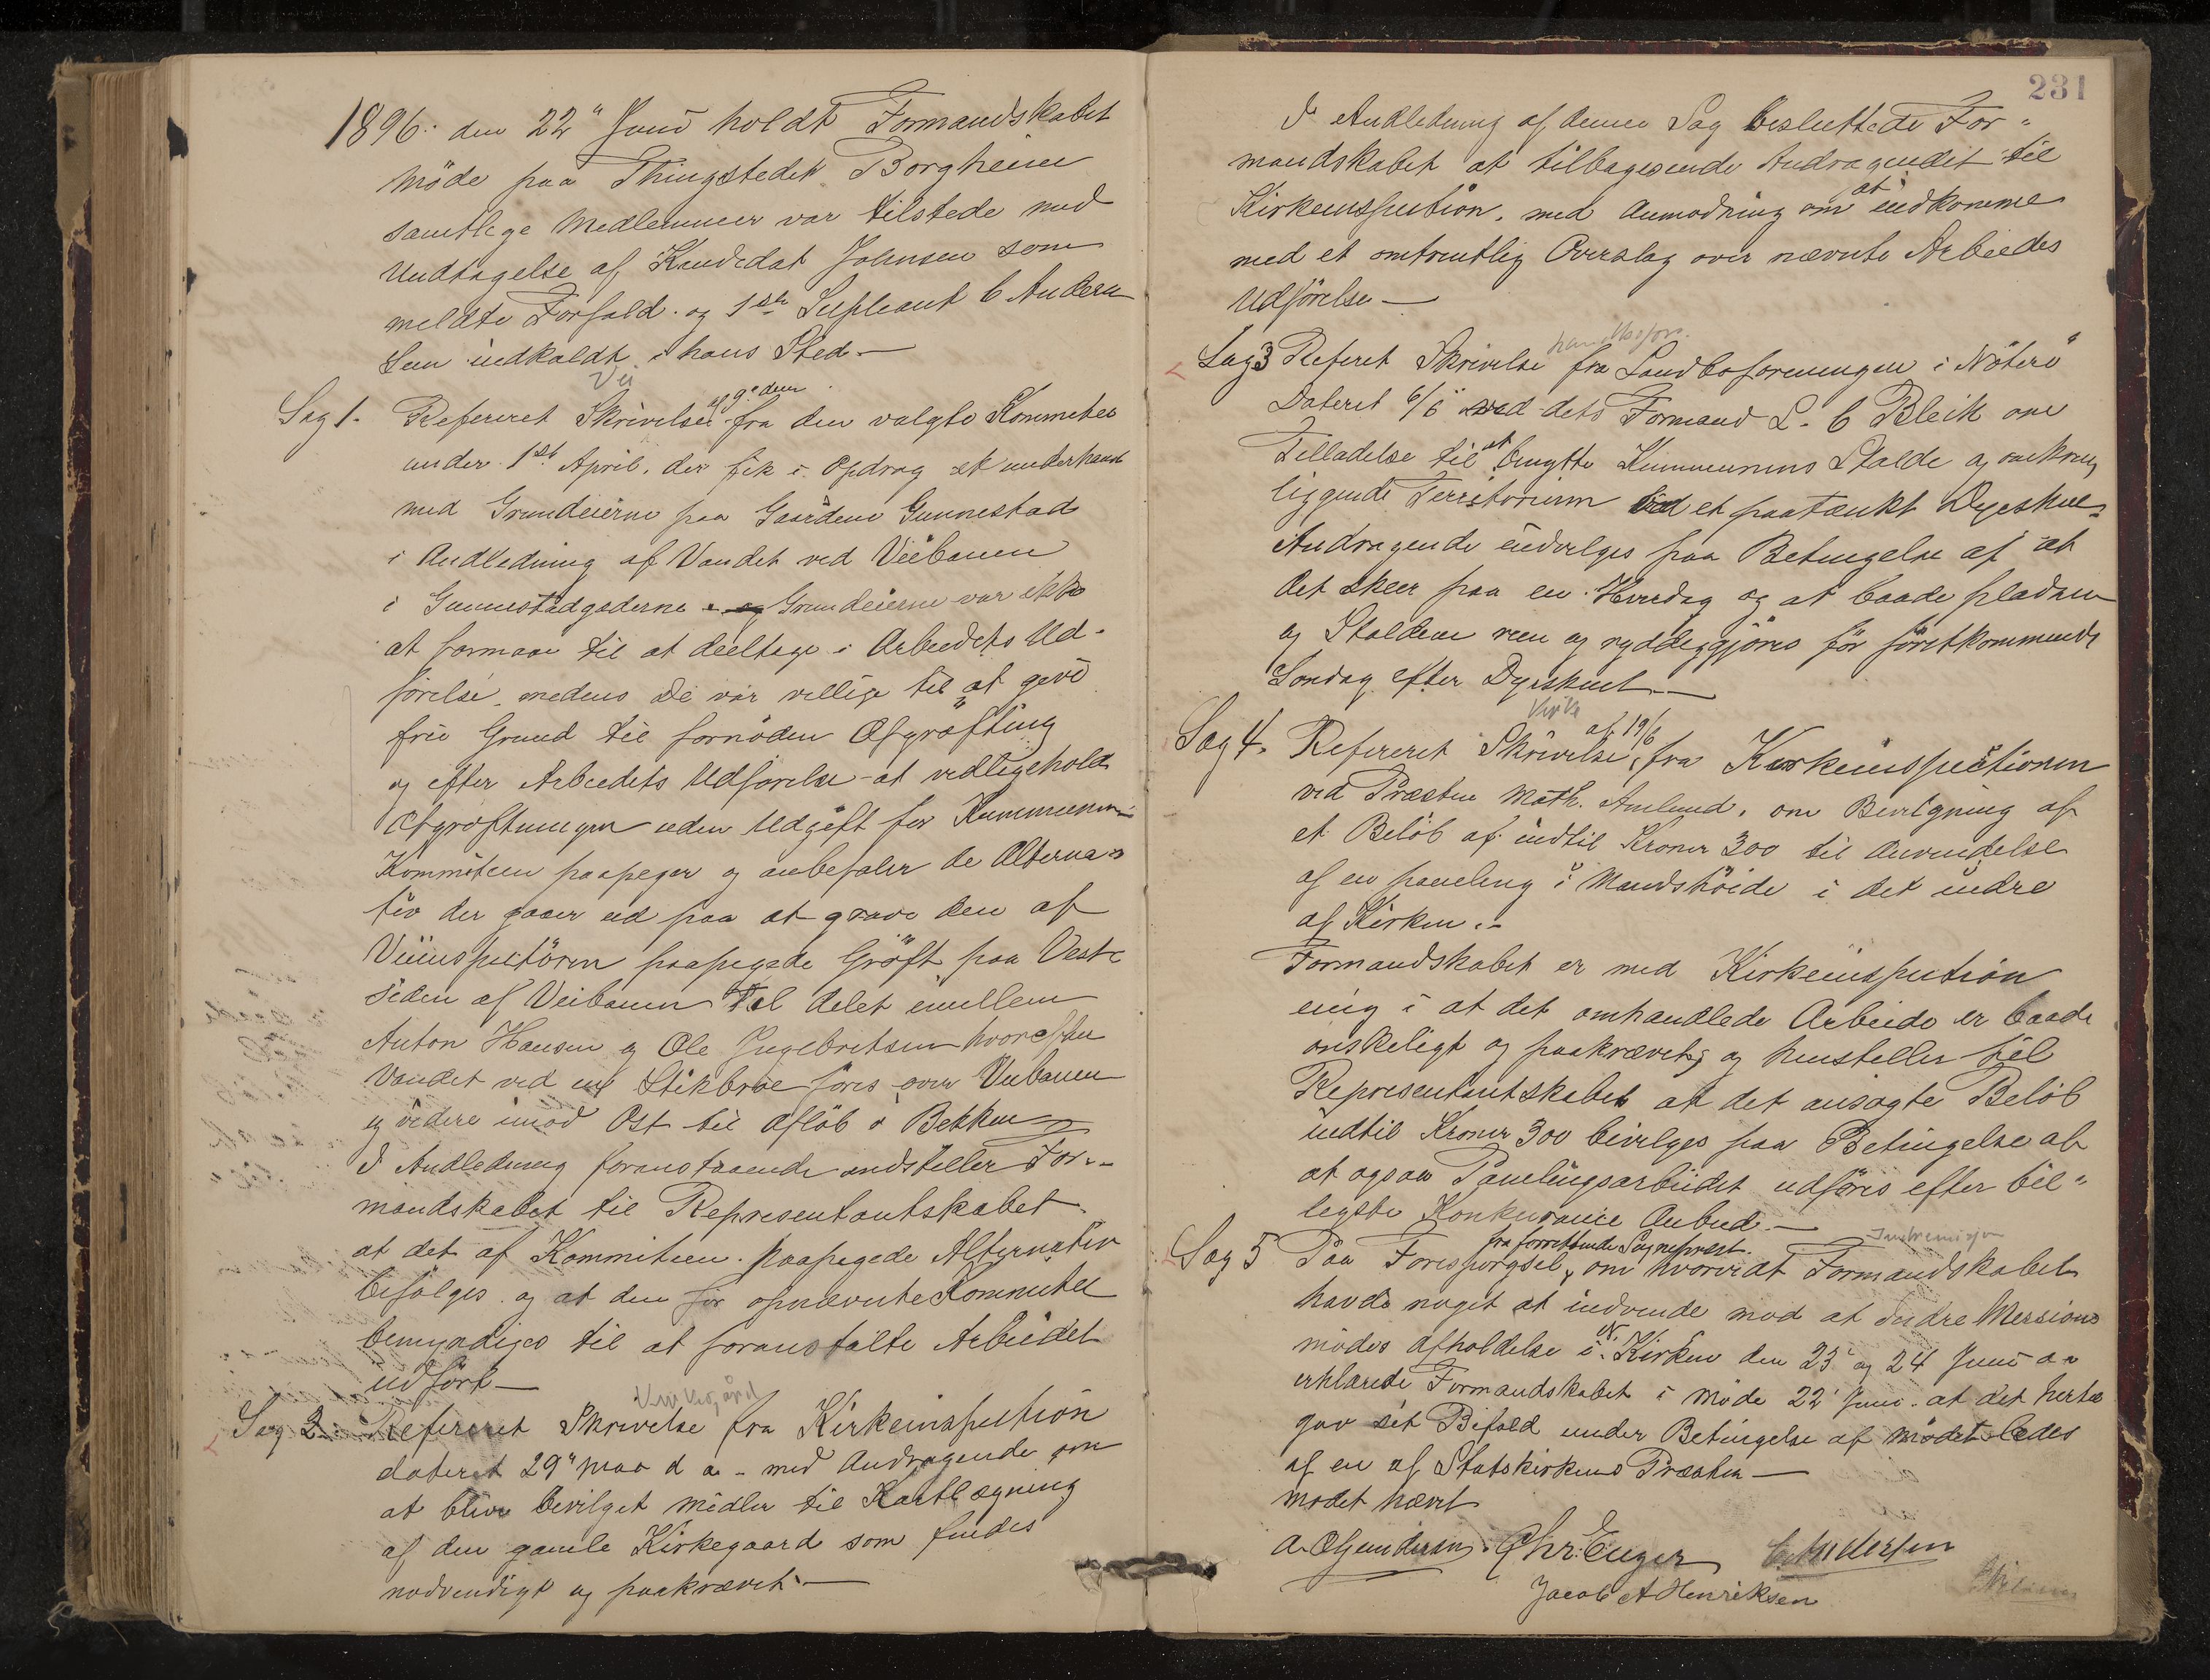 1896. den 22" Juni holdt Formandskabet
Möde paa Thingstedet Borgheim
samtlege Medlemmer var tilstede med
Undtagelse af Kandidat Johnsen som
meldte Forfald. og 1ste Supleant C Ander
sen indkaldt i hans Sted.—
Vei
Sag 1. Refereret Skrivelse af 9de dm fra den valgte Kommitee
under 1st April. der fik i Opdrag at underhand
med Grundeierne paa Gaardene Gunnestad
i Andledning af Vandet ved Veibanen
i Gunnestadgaderne. og Grundeierne var ikke
at formaa til at deeltage i Arbeidets Ud-
förelse. medens De var villige til at give
frie Grund til fornöden Afgröfting
og efter Arbeidets Udförelse at vedligehold
Afgröftningen uden Udgift for Kummunen
Kommiteen paapeger og anbefaler de Alterna-
tiv der gaaer ud paa at grave den af
Veiinspectören paapegede Gröft paa Vest-
siden af Veibanen Til delet imellem
Anton Hansen og Ole Ingebretsen hvorefter
Vandet ved en Stikbroe föres over Veibanen
og videre imod Ost til Aflöb i Bekken
I Andledning foranstaaende indstiller For-
mandskabet til Representantskabet
at det af Kommiteen. paapegede Alternativ
befölges og at den för opnævnte Kommitee
bemyndiges til at foranstalte Arbeidet
udfört—
Kirkegård
Sag 2. Refereret Skrivelse fra Kirkeinspection
dateret 29" Mai d a - med Andragende om
at blive bevilget midler til Kartlægning
af den gamle Kirkegaard som findes
nodvendigt og paakrævet.—
231
I Andledning af denne Sag besluttede For-
mandskabet at tilbagesende Andragendet til
Kirkeinspection. med Anmodning om at indkomme
med et omtrentlig Overslag over nævnte Arbeides
Udförelse—
Sag 3 Referet Skrivelse fra Landboforeningen i Nöterö
Dateret 6/6 ved dets Formand L. C Bleik om
Tilladelse til at benytte Kummunens Stalde og omkring
liggende Territorium ved et paatænkt Dyrskue-
Andragende indvilges paa Betingelse af at
det skeer paa en Hverdag og at baade pladsen
og Staldene reen og ryddeggjöres för förstkommende
Söndag efter Dyrskuet.—
Kirke
Sag 4. Refereret Skrivelse, af 19/6 fra Kirkeinspectionen
ved Præsten Math. Amlund. om Bevilgning af
et Belöb af indtil Kroner 300 til Anvendelse
af en paneling i Mandshöide i det indre
af Kirken.-
Formandskabet er med Kirkeinspection
enig i at det omhandlede Arbeide er baade
onskeligt og paakrævet, og henstiller til
Representantskabet at det ansögte Belöb
indtil Kroner 300 bevilges paa Betingelse at
at ogsaa Panelingsarbeidet udföres efter bil-
legste Konkurance Anbud.—
Sag 5 Paa Forespörgsel, fra forrettende Sogneprest. om hvorvidt Formandskabet
havde noget at indvende mod at Indre Missions
mödes Afholdelse i N. Kirken den 23 og 24 Juni d a
erklærede Formandskabet i Möde 22 Juni. at det hertil
gav sit Bifald under Betingelse af mödet ledes
af en af Statskirkens Præster—
Mödet hævet
A. Gundersen Chr: Enger C. Andersen
Jacob A Henriksen